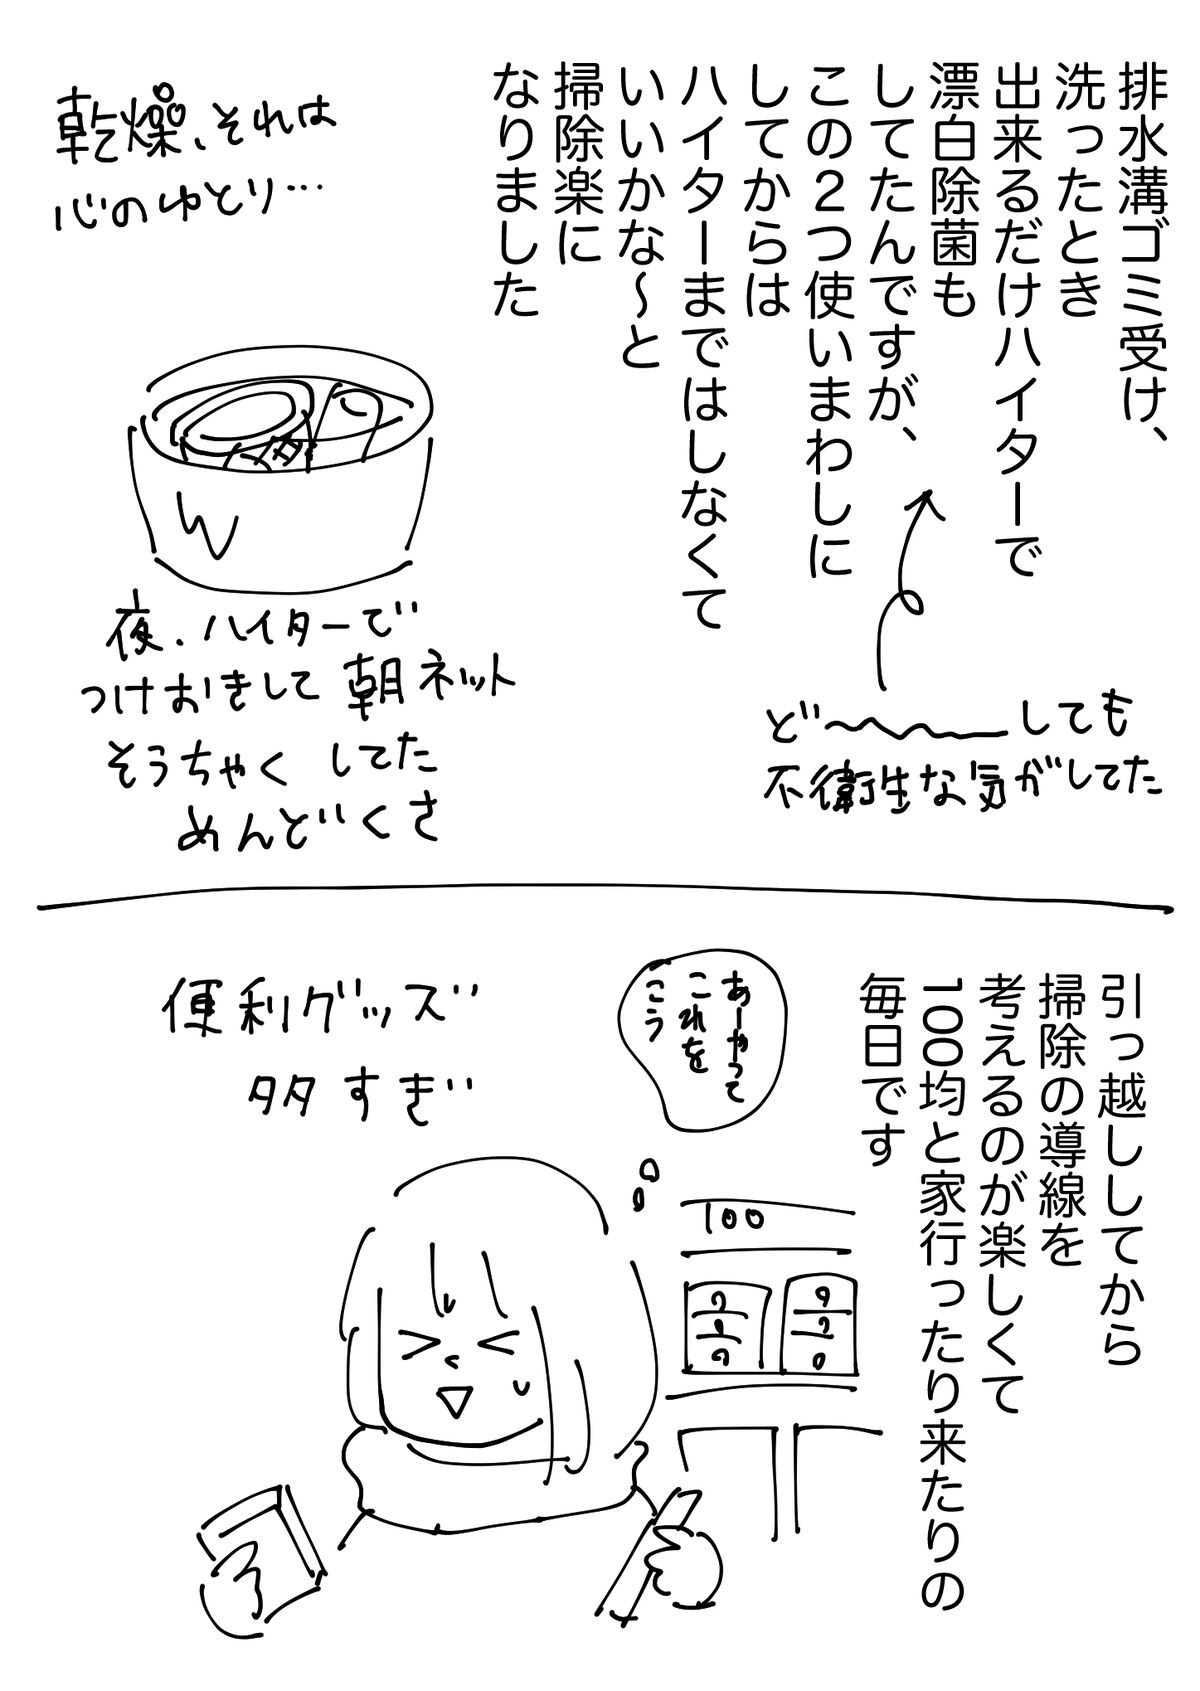 排水溝ゴミ受け、
洗ったとき
出来るだけハイターで
漂白除菌も
してたんですが、
この2つ使いまわしに
してからは
ハイターまではしなくて
いいかな〜と
掃除楽に
なりました
ど〜〜〜しても
不衛生な気がしてた
乾燥、それは
心のゆとり…
W
夜、ハイターで
つけおきして朝ネット
そうちゃくしてた
めんどくさ
引っ越ししてから
掃除の導線を
考えるのが楽しくて
100均と家行ったり来たりの
毎日です
あーやって
これを
こう
便利グッズ
多すぎ
100